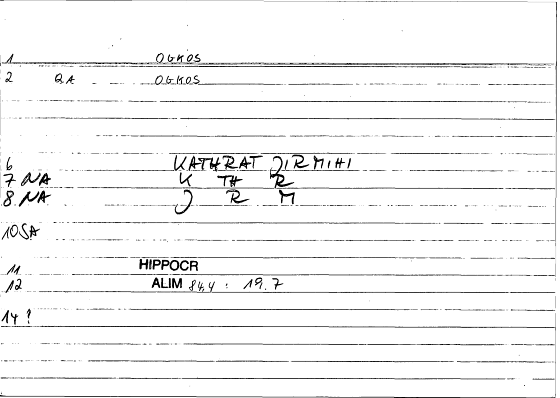 1 OGKOS
2 QA OGKOS
6 KATHRAT JIRMIHI
7 NA K TH R
8 NA J R M
10 SA
11 HIPPOCR
12 ALIM 84,4 : 19.7
14 ?